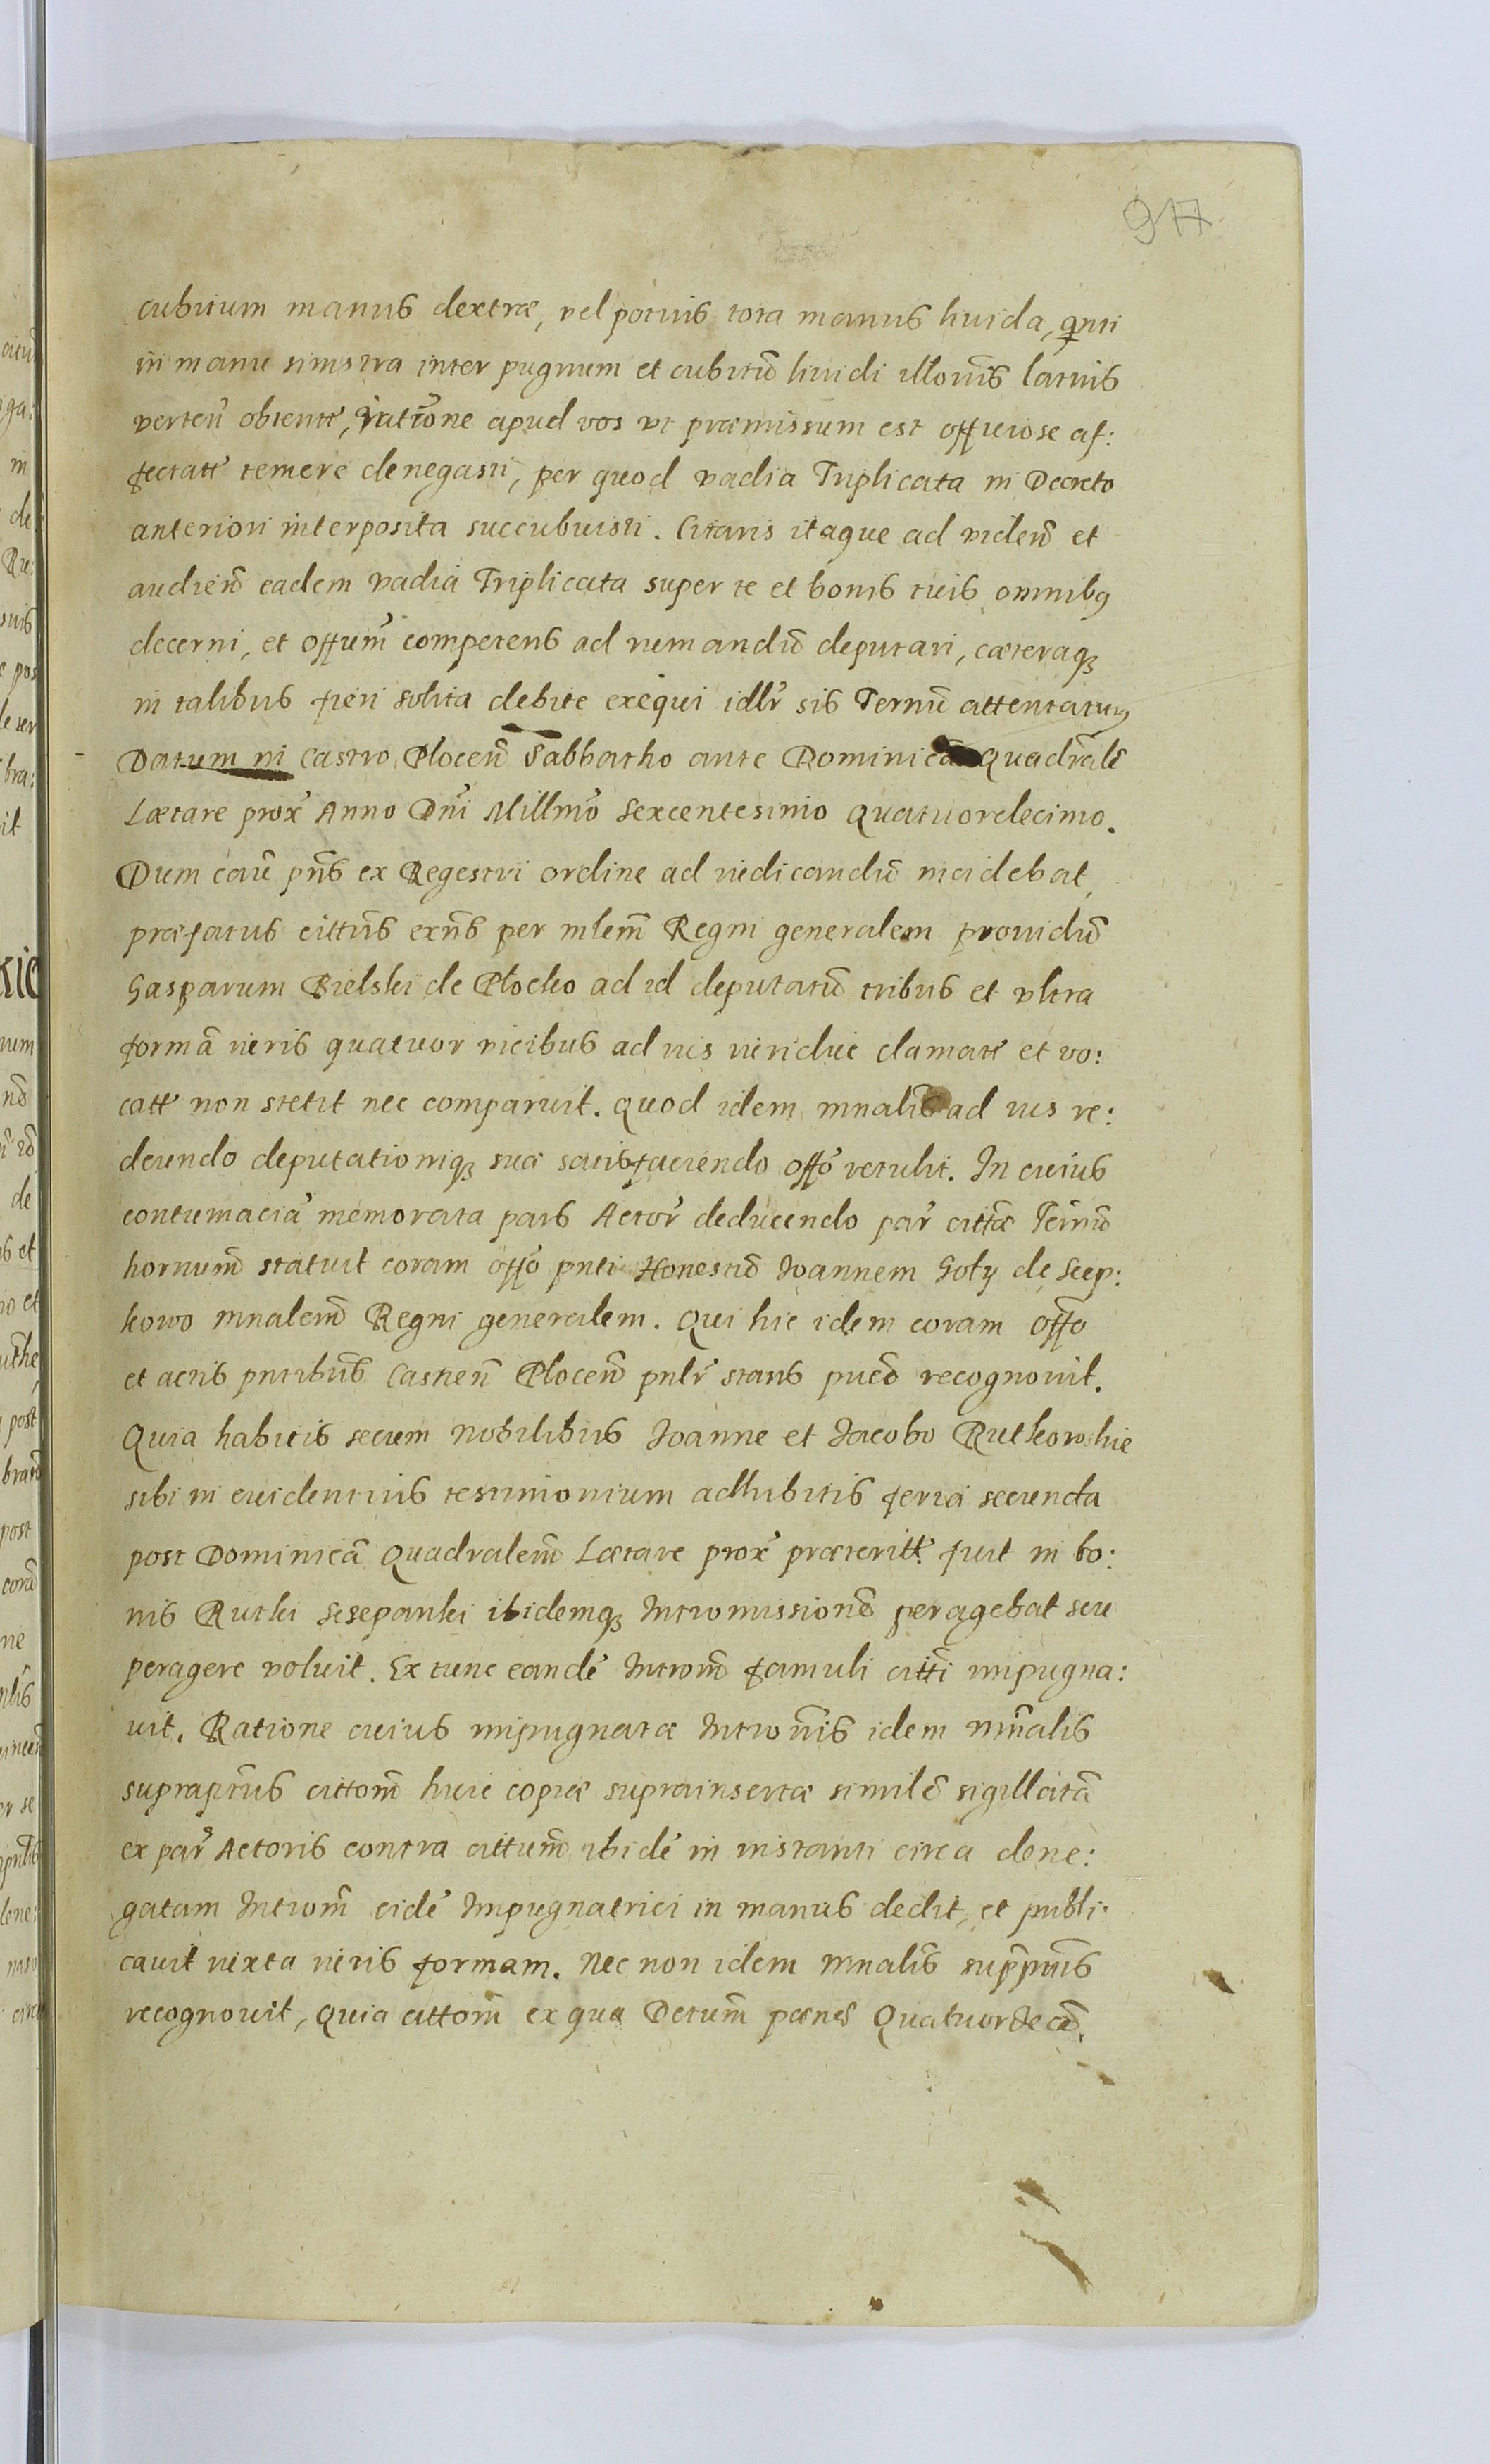 917
cubitum manus dextræ, vel potius tota manus livida,
in manu sinistra inter pugnum et cubitũ lividi illoñis latius
verteñ obtentẽ, ratione apud vos vt præmissum est officiose af:
fectatẽ temere denegasti, per quod vadia Triplicata in Decreto
anteriori interposita succubuisti. Citaris itaque ad videñ et
audieñ eadem vadia Triplicata super te et bonis tuis omnibq
decerni, et offum̃ competens ad remandũ deputari, cæteraqȝ
in talibus fieri solita debite exequi idlr̃ sis Ternũ attentatury
Datum in Castro Plocen̄ Sabbatho ante Dominicã Quadraĩs
Lætare prox̃ Anno Dñi Millmõ Sexcentesimo Quatuordecimo.
Dum caũ pñs ex Regestri ordine ad iudicandũ incidebat,
præfatus cittũs exñs per mlem̃ Regni generalem providũ
Gasparum Bielski de Plocko ad id deputatũ tribus et vltra
formã iuris quatuor vicibus ad ius iuridice clamatẽ et vo:
catẽ non stetit nec comparuit. Quod idem mnalis̃ ad ius re:
deundo deputationiqȝ suæ satisfaciendo offõ retulit. In cuius
contumaciã memorata pars Actor̃ deducendo par̃ cittæ Ternũ
hornum̃ statuit coram offõ pnti Honestũ Joannem Goły de Seep:
kowo mnalem̃ Regni generalem. Qui hic idem coram Offõ
et actis pntibus̃ Castren̄ Plocen̄ pnlr̃ stans recognovit.
Quia habitis secum Nobilibus Joanne et Jacobo Rutkowskie
sibi in evidentius testimonium adhibitis feria secunda
post Dominicã Quadralem̃ Lætare prox̃ præteritt̃. fuit in bo:
nis Rutki Szczepanki ibidemqȝ Intromissionẽ peragebat seu
peragere voluit. Ex tunc eandẽ Introm̃ famuli citti impugna:
uit. Ratione cuius impugnatæ Introñis idem mñalis
suprapñus cittom̃ huic copiæ suprainsertæ similẽ sigillatã
ex par̃ Actoris contra cittum̃ ibidẽ in instanti circa dene:
gatam Introm̃ eidẽ Impugnatrici in manus dedit, et publi:
cavit iuxta iuris formam. Nec non idem mnalis̃ suppñus
recognovit, Quia cittom̃ ex qua Decrum̃ pænes Quatuordecĩ.